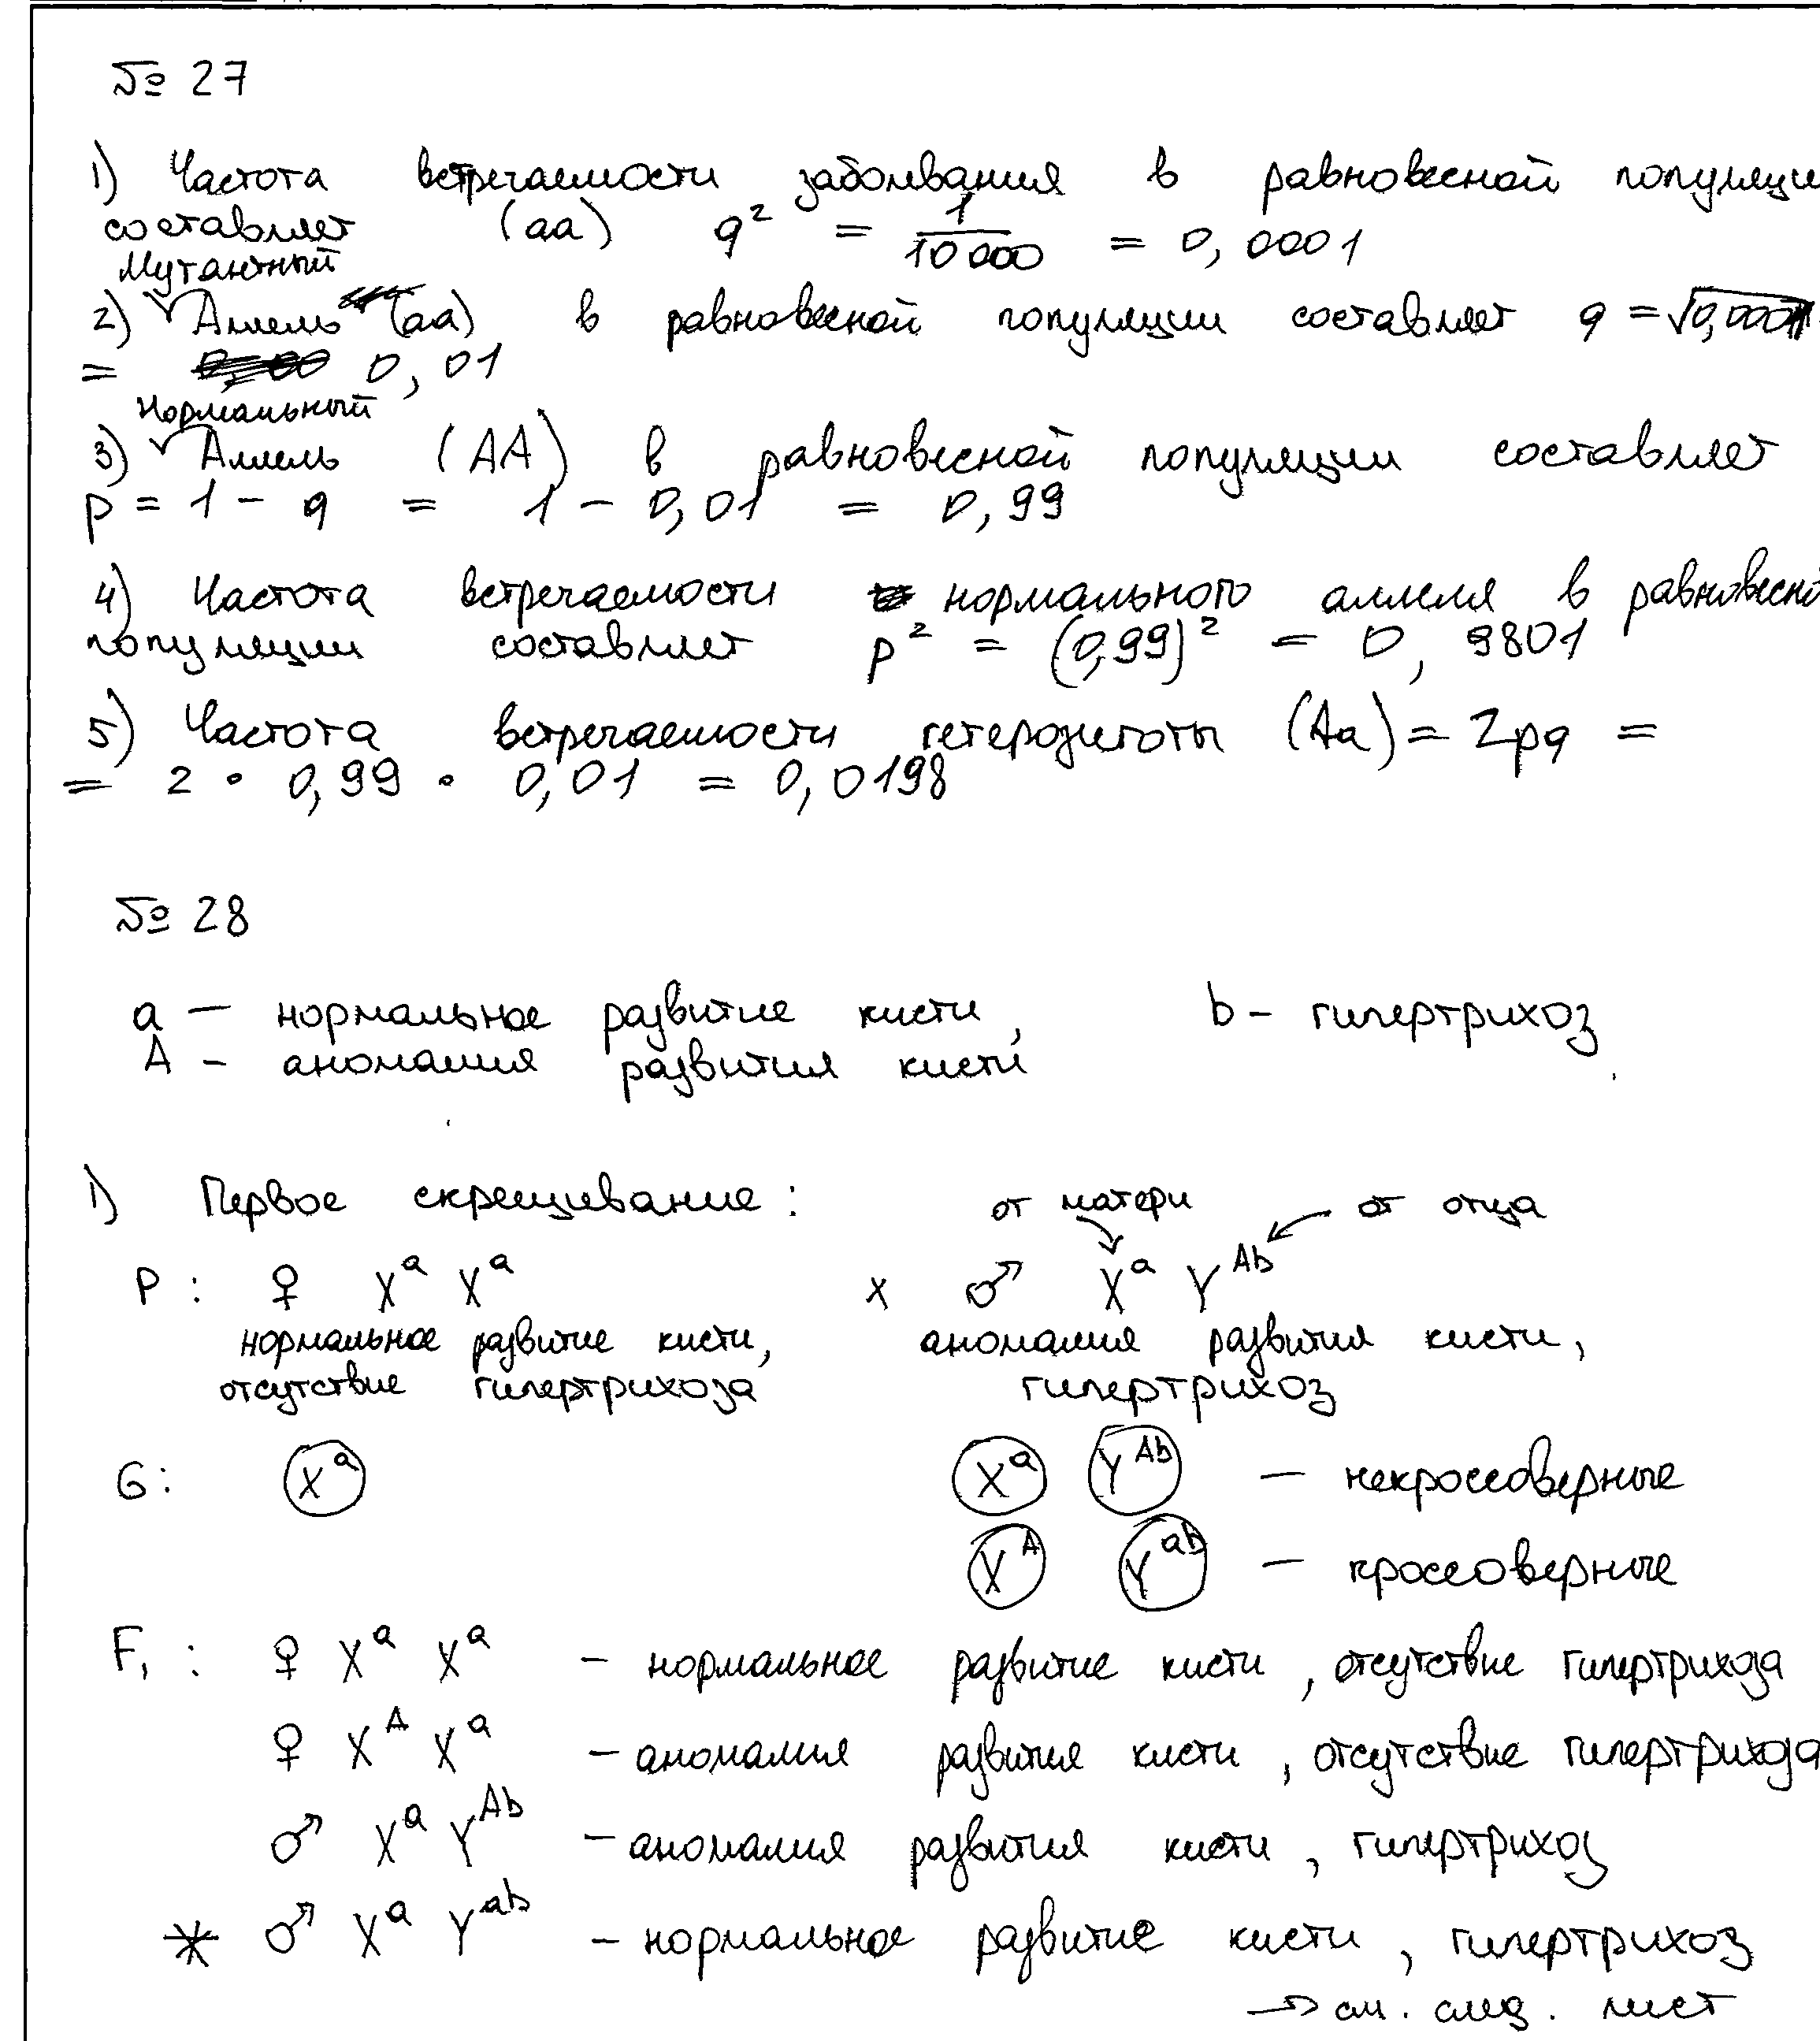 № 27
1) Частота встречаемости заболевания в равновесной популяци
составляет (aa) q² = 1/10000 = 0,0001
Мутантный
2) Аллель (aa) в равновесной популяции составляет q = √0,0001
= 0,01
Нормальный
3) Аллель (AA) в равновесной популяции составляет
p = 1 - q = 1 - 0,01 = 0,99
4) Частота встречаемости нормального аллеля в равновесно
популяции составляет p² = (0,99)² = 0,9801
5) Частота встречаемости гетерозиготы (Aa) = 2pq =
= 2 · 0,99 · 0,01 = 0,0198
№ 28
a — нормальное развитие кисти, b – гипертрихоз
A – аномалия развития кисти
1) Первое скрещивание: от матери от отца
P: ♀ Xᵃ Xᵃ x ♂ Xᵃ Yᴬᵇ
нормальное развитие кисти, аномалия развития кисти,
отсутствие гипертрихоза гипертрихоз
G: Xᵃ Xᵃ Yᴬᵇ — некроссоверные
Xᴬ Yᵃᵇ — кроссоверные
F₁: ♀ Xᵃ Xᵃ – нормальное развитие кисти, отсутствие гипертрихоза
♀ Xᴬ Xᵃ – аномалия развития кисти, отсутствие гипертрихоза
♂ Xᵃ Yᴬᵇ – аномалия развития кисти, гипертрихоз
* ♂ Xᵃ Yᵃᵇ – нормальное развитие кисти, гипертрихоз
→ см. след. лист